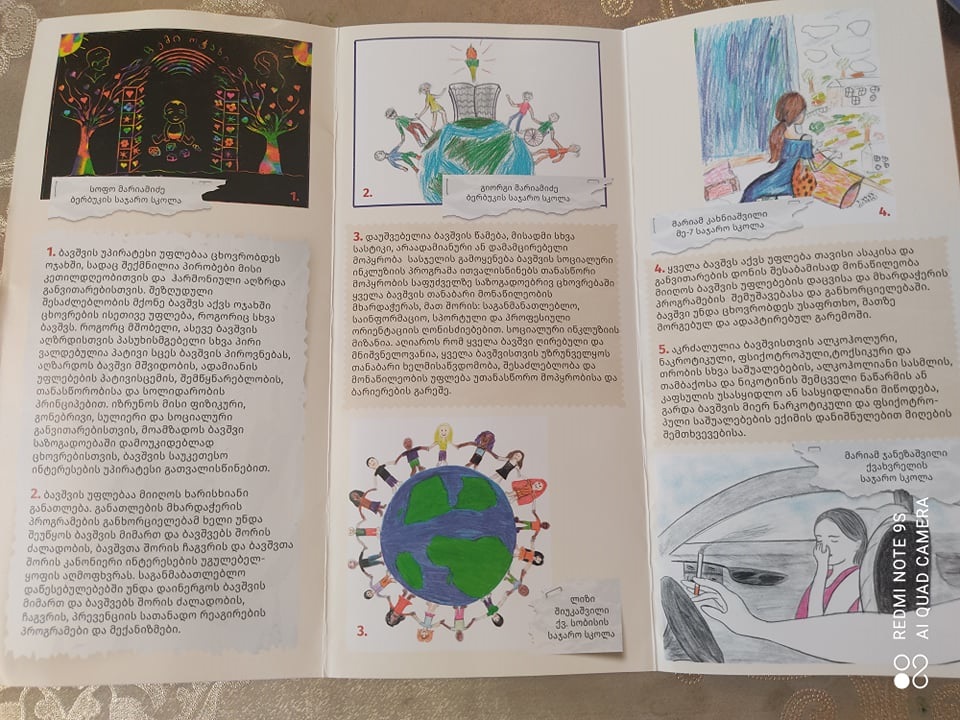 ჩემი ოჯახი
სოფო მარიამიძე
ბერბუკის საჯარო სკოლა
1.
1. ბავშვის უპირატესი უფლებაა ცხოვრობდეს
ოჯახში, სადაც შექმნილია პირობები მისი
კეთილდღეობითვის და ჰარმონიული აღზრდა
განვითარებისთვის. შეზღუდული
შესაძლებლობის მქონე ბავშვს აქვს ოჯახში
ცხოვრების ისეთივე უფლება, როგორიც სხვა
ბავშვს. როგორც მშობელი, ასევე ბავშვის
აღზრდისთვის პასუხისმგებელი სხვა პირი
ვალდებულია პატივი სცეს ბავშვის პიროვნებას,
აღზარდოს ბავშვი მშვიდობის, ადამიანის
უფლებების პატივისცემის, შემწყნარებლობის,
თანასწორობისა და სოლიდარობის
პრინციპებით. იზრუნოს მისი ფიზიკური,
გონებრივი, სულიერი და სოციალური
განვითარებისთვის, მოამზადოს ბავშვი
საზოგადოებაში დამოუკიდებლად
ცხოვრებისთვის, ბავშვის საუკეთესო
ინტერესების უპირატესი გათვალისწინებით.
2. ბავშვის უფლებაა მიიღოს ხარისხიანი
განათლება. განათლების მხარდაჭერის
პროგრამების განხორციელებამ ხელი უნდა
შეუწყოს ბავშვის მიმართ და ბავშვებს შორის
ძალადობის, ბავშვთა შორის ჩაგვრის და ბავშვთა
შორის კანონიერი ინტერესების უგულებელ-
ყოფის აღმოფხვრას. საგანმანათლებლო
დაწესებულებებში უნდა დაინერგოს ბავშვის
მიმართ და ბავშვებს შორის ძალადობის,
ჩაგვრის, პრევენციის სათანადო რეაგირების
პროგრამები და მექანიზმები.
2.
გიორგი მარიამიძე
ბერბუკის საჯარო სკოლა
3. დაუშვებელია ბავშვის წამება, მისადმი სხვა
სასტიკი, არაადამიანური ან დამამცირებელი
მოპყრობა სასჯელის გამოყენება ბავშვის სოციალური
ინკლუზიის პროგრამა ითვალისწინებს თანასწორი
მოპყრობის საფუძველზე საზოგადოებრივ ცხოვრებაში
ყველა ბავშვის თანაბარი მონაწილეობის
მხარდაჭერას, მათ შორის: საგანმანათლებლო,
საინფორმაციო, სპორტული და პროფესიული
ორიენტაციის ღონისძიებებით. სოციალური ინკლუზიის
მიზანია. აღიაროს რომ ყველა ბავშვი ღირებული და
მნიშვნელოვანია, ყველა ბავშვისთვის უზრუნველყოს
თანაბარი ხელმისაწვდომობა, შესაძლებლობა და
მონაწილეობის უფლება უთანასწორო მოპყრობისა და
ბარიერების გარეშე.
3.
ლიზი
შიუკაშვილი
ქვ. სობისის
საჯარო სკოლა
4.
მარიამ კახნიაშვილი
მე-7 საჯარო სკოლა
4. ყველა ბავშვს აქვს უფლება თავისი ასაკისა და
განვითარების დონის შესაბამისად მონაწილეობა
მიიღოს ბავშვის უფლებების დაცვისა და მხარდაჭერის
პროგრამების შემუშავებასა და განხორციელებაში.
ბავშვი უნდა ცხოვრობდეს უსაფრთხო, მათზე
მორგებულ და ადაპტირებულ გარემოში.
5. აკრძალულია ბავშვისთვის ალკოჰოლური,
ნაკროტიკული, ფსიქოტროპული,ტოქსიკური და
თრობის სხვა საშუალებების, ალკოჰოლიანი სასმლის,
თამბაქოსა და ნიკოტინის შემცველი ნაწარმის ან
კაფსულის უსასყიდლო ან სასყიდლიანი მიწოდება,
გარდა ბავშვის მიერ ნარკოტიკული და ფსიქოტრო-
პული საშუალებების ექიმის დანიშნულებით მიღების
შემთხვევებისა.
მარიამ ჯანეზაშვილი
ქვახვრელის
საჯარო სკოლა
REDMI NOTE 9S
AI QUAD CAMERA